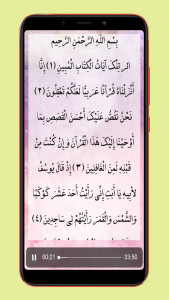 بِسْمِ اللَّهِ الرَّحْمَٰنِ الرَّحِيمِ
الر تِلْكَ آيَاتُ الْكِتَابِ الْمُبِينِ (١) إِنَّا
أَنْزَلْنَاهُ قُرْآنًا عَرَبِيًّا لَعَلَّكُمْ تَعْقِلُونَ (٢)
نَحْنُ نَقُصُّ عَلَيْكَ أَحْسَنَ الْقَصَصِ بِمَا
أَوْحَيْنَا إِلَيْكَ هَذَا الْقُرْآنَ وَإِنْ كُنْتَ مِنْ
قَبْلِهِ لَمِنَ الْغَافِلِينَ (٣) إِذْ قَالَ يُوسُفُ
لِأَبِيهِ يَا أَبَتِ إِنِّي رَأَيْتُ أَحَدَ عَشَرَ كَوْكَبًا
وَالشَّمْسَ وَالْقَمَرَ رَأَيْتُهُمْ لِي سَاجِدِينَ (٤)
00:21 33:50